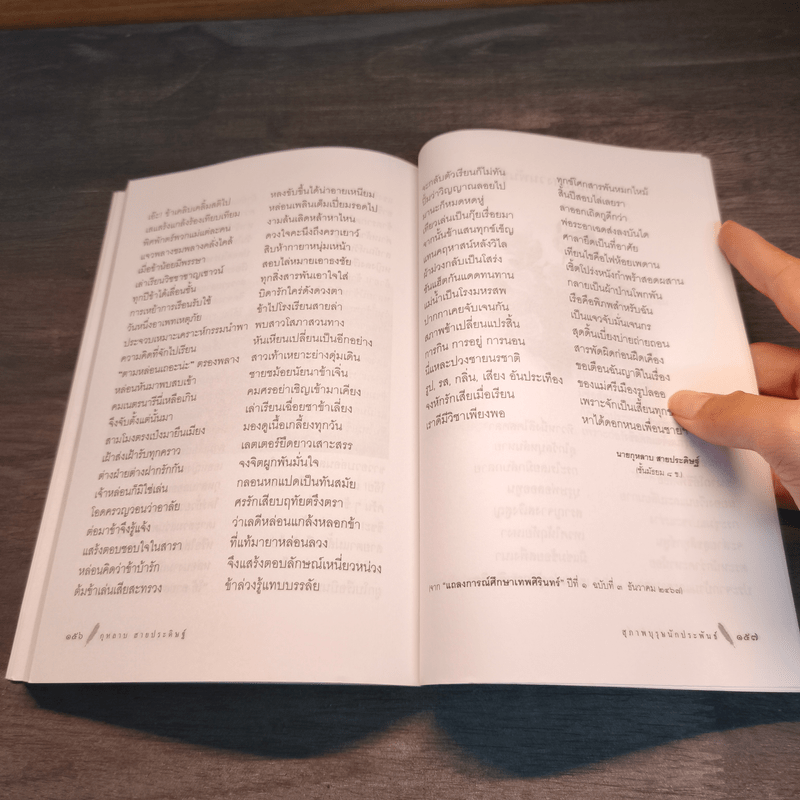 เอ๊ะ! ข้าเคลิบเคลิ้มสติไป หลงชับชื้นใต้น่าอายเหนียม
เสแสร้งแกล้งร้องเทียบเทียม หล่อนเพลินเติมเปี่ยมรอดไป
พิศพักตร์พวกแม่แต่ละคน งามล้นเลิศหล้าหาไหน
แจวพลางชมพลางคลั่งไคล้ ดวงใจคะนึงถึงคราเยาว์
เมื่อข้าน้อยมีพรรษา สิบห้ากายาหนุ่มเหน้า
เล่าเรียนวิชชาชาญเชาวน์ สอบไล่หมายเอาธงชัย
ทุกปีข้าได้เลื่อนชั้น ทุกสิ่งสารพันเอาใจใส่
การเหย้าการเรือนรับใช้ บิดารักใคร่ดังดวงตา
วันหนึ่งอาเพทเหตุภัย ข้าไปโรงเรียนสายล่า
ประจวบเหมาะเคราะห์กรรมนำพา พบสาวโสภาสวนทาง
ความคิดที่จักไปเรียน หันเหียนเปลี่ยนเป็นอีกอย่าง
"ตามหล่อนเถอะน่ะ" ตรองพลาง สาวเท้าเหยาะย่างดุ่มเดิน
หล่อนหันมาพบสบเข้า ชายชม้อยนัยนาข้าเจิ่น
คมเนตรนารีนี่เหลือเกิน คมศรอย่าเชิญเข้ามาเคียง
จึงจับตั้งแต่นั้นมา เล่าเรียนเฉื่อยชาข้าเลี่ยง
สามโมงตรงเป๋งมายืนเมียง มองดูเนื้อเกลี้ยงทุกวัน
เฝ้าส่งเฝ้ารับทุกคราว เลตเตอร์ยืดยาวเสาะสรร
ต่างม้ายต่างฝากรักกัน จงจิตผูกพันมั่นใจ
เจ้าหล่อนก็มิใช่เล่น กลอนหกแปดเป็นทันสมัย
โอดครวญวอนว่าอาลัย ศรรักเสียบฤทัยตรึงตรา
ต่อมาข้าจึงรู้แจ้ง ว่าเลดีหล่อนแกล้งหลอกข้า
แสร้งตอบชอบใจในสารา ที่แท้มายาหล่อนลวง
หล่อนคิดว่าข้าบ้ารัก จึงแสร้งตอบลักษณ์เหนี่ยวหน่วง
ต้มข้าเล่นเสียสะทรวง ข้าล่วงรู้แทบบรรลัย
๑๕๖ กุหลาบ สายประดิษฐ์
จะกลับตัวเรียนก็ไม่ทัน ทุกข์โศกสารพันหมกไหม้
วิญญาณลอยไป สิ้นปีสอบไล่เลยรา
ก็หมดหดหู่ ลาออกเถิดกูดีกว่า
เที่ยวเล่นเป็นกุ๊ยเรื่อยมา พ่อระอาเฉดส่งลงบันได
จากนั้นข้าแสนทุกข์เข็ญ ศาลายึดเป็นที่อาศัย
แทนคฤหาสน์หลังวิไล เทียนไขคือไฟห้อยเพดาน
ม่วงกลับเป็นโสร่ง เชิ้ตโปร่งหนังกำพร้าสอดผสาน
เฮ็ดกันแดดทนทาน กลายเป็นผ้าบ้านโพกพัน
แม่น้ำเป็นโรงมหรสพ เรือคือพิภพสำหรับฉัน
ปากกาเคยจับเจนกัน เป็นแจวจับมั่นเจนกร
สภาพข้าเปลี่ยนแปรสิ้น สุดดิ้นเบี่ยงบ่ายถ่ายถอน
การกิน การอยู่ การนอน สารพัดผิดก่อนฝืดเคือง
นี่แหละปวงชายนรชาติ ขอเตือนอันญาติในเรื่อง
รูป, รส, กลิ่น, เสียง อันประเทือง ของแม่ศรีเมืองรูปลออ
จงหักรักเสียเมื่อเรียน เพราะจักเป็นเสี้ยนทุกข์
เราดีมีวิชาเพียงพอ หาได้ดอกหนอเพื่อนชาย
นายกุหลาบ สายประดิษฐ์
(ชั้นมัธยม ๘ ข.)
(จาก "แถลงการณ์ศึกษาเทพศิรินทร์" ปีที่ ๑ ฉบับที่ ๓ ธันวาคม ๒๔๖๗)
สุภาพบุรุษนักประพันธ์ ๑๕๗